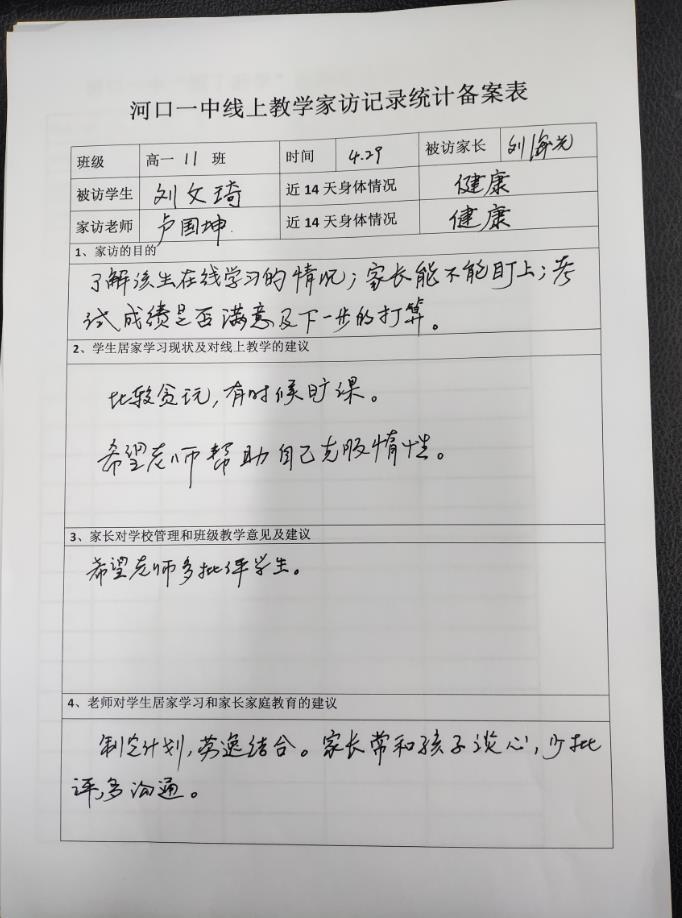 河口一中线上教学家访记录统计备案表
班级 高一 11 班 时间 4.29 被访家长 刘海光
被访学生 刘文琦 近14天身体情况 健康
家访老师 卢国坤 近14天身体情况 健康
1、家访的目的
了解该生在线学习的情况；家长能不能盯上；考
试成绩是否满意及下一步的打算。
2、学生居家学习现状及对线上教学的建议
比较贪玩，有时候旷课。
希望老师帮助自己克服惰性。
3、家长对学校管理和班级教学意见及建议
希望老师多批评学生。
4、老师对学生居家学习和家长家庭教育的建议
制定计划，劳逸结合。家长常和孩子谈心，少批
评，多沟通。